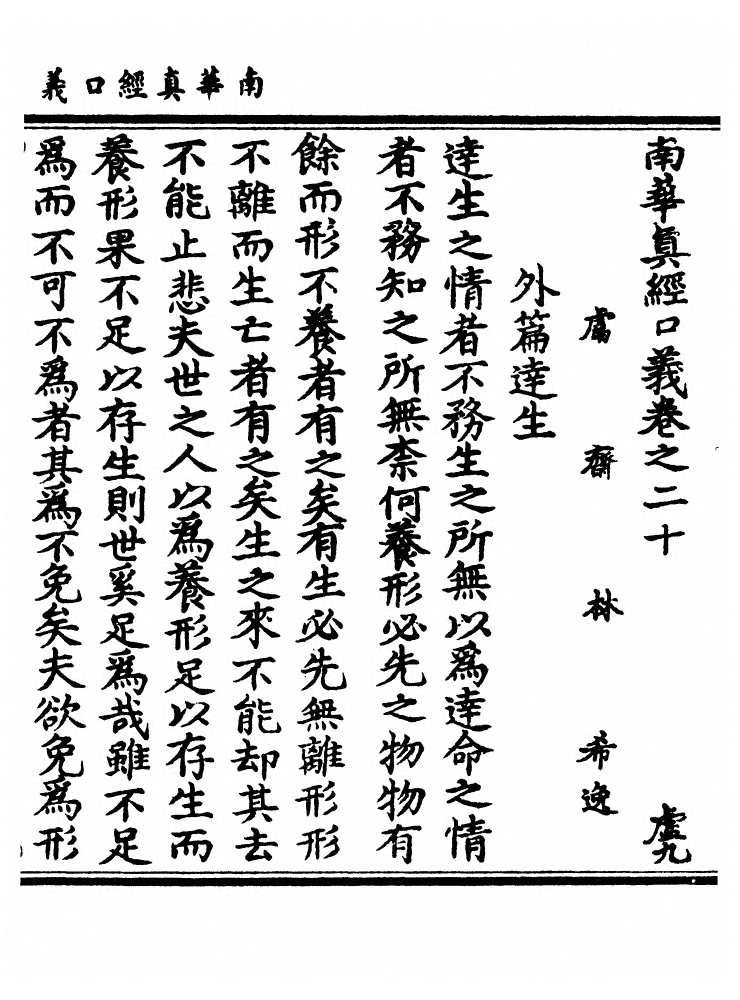 南華真經口義
南華真經口義卷之二十
虗九
鬳齋林希逸
外篇達生
達生之情者不務生之所無以爲達命之情
者不務知之所無柰何養形必先之物物有
餘而形不養者有之矣有生必先無離形形
不離而生亡者有之矣生之來不能却其去
不能止悲夫世之人以爲養形足以存生而
養形果不足以存生則世奚足爲哉雖不足
爲而不可不爲者其爲不免矣夫欲免爲形